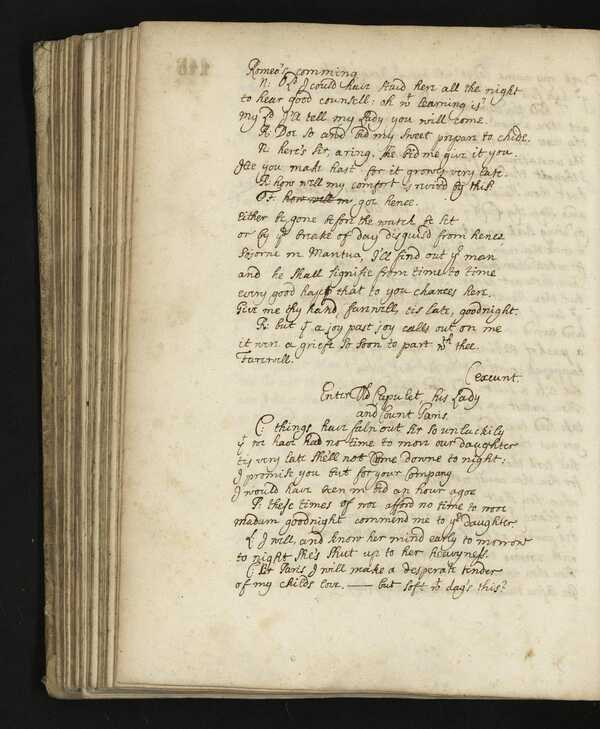 Romeo's comming
N: O Ld I could have staid here all the night
to hear good counsell: oh wt learning is!
My Ld I'll tell my Lady you will come.
R: Doe so and bid my sweet prepare to chide.
N: here's Sir, a ring, she bid me give it you.
Hie you make hast for it growes very late.
R: how well my comfort is reviv'd by this?
Fr. how well m goe hence.
Either be gone before the watch be set
or by ye breake of day disguis'd from hence
Sojorne in Mantua, I'll find out yr man
and he shall signifie from time to time
every good hap that to you chances here.
Give me thy hand, farewell, tis late, goodnight.
R: but yt a joy past joy calls out on me
it were a griefe so soon to part wth thee.
Farewell.
(exeunt.
Enter Old Capulet, his Lady
and Count Paris.
C: things have faln out Sir so unluckily
yt we have had no time to move our daughter
tis very late she'll not come downe to night:
I promise you but for your company
I would have been in bed an hour agoe
P: these times of woe afford no time to wooe
madam goodnight commend me to yor daughter
L: I will, and know her mind early to morrow
to night she's shut up to her heavyness.
C: Sr Paris I will make a desperate tender
of my childs love. —— but soft wt day's this?